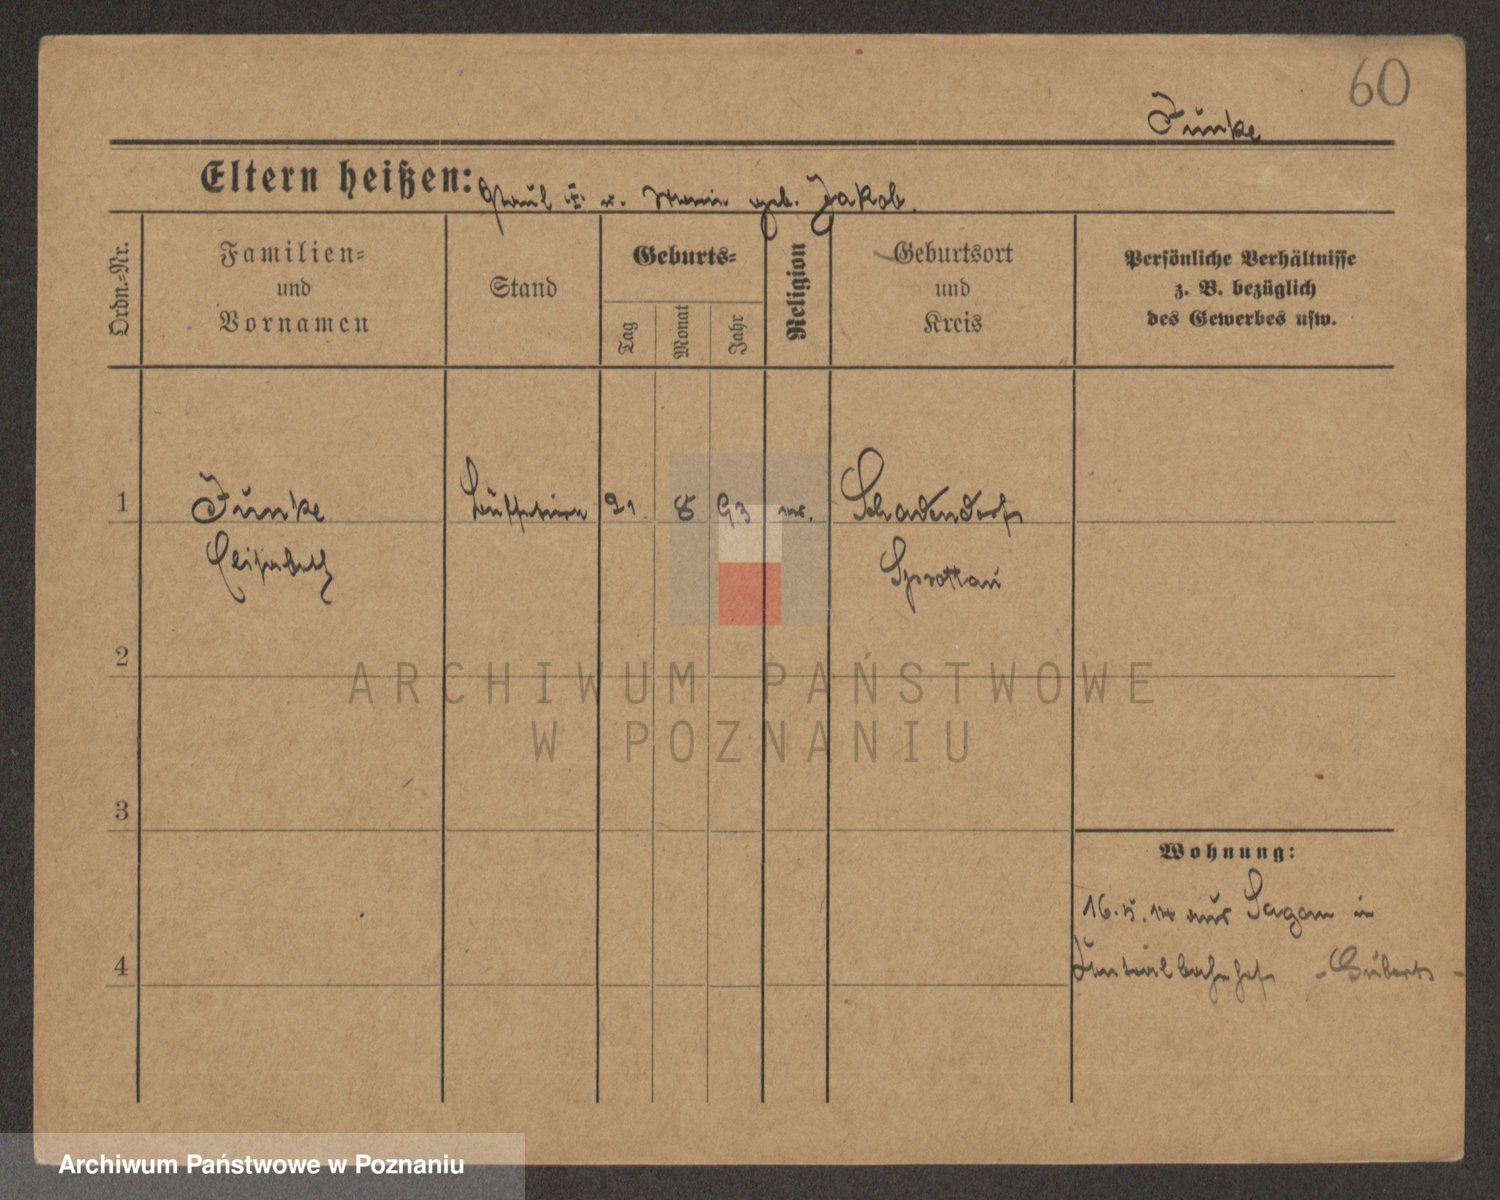 60
Funke
Eltern heißen: Paul u. geb. Jakob.
Ordn.-Nr.
Familien-
und
Vornamen
Stand
Geburts-
Tag
Monat
Jahr
Religion
Geburtsort
und
Kreis
Persönliche Verhältnisse
z. B. bezüglich
des Gewerbes usw.
1 Funke 21 8 93 Schadendorf
Elisabeth Sprottau
2
3
4
Wohnung:
16. aus Sagan in
Zentralbahnhof
ARCHIWUM PAŃSTWOWE
W POZNANIU
Archiwum Państwowe w Poznaniu